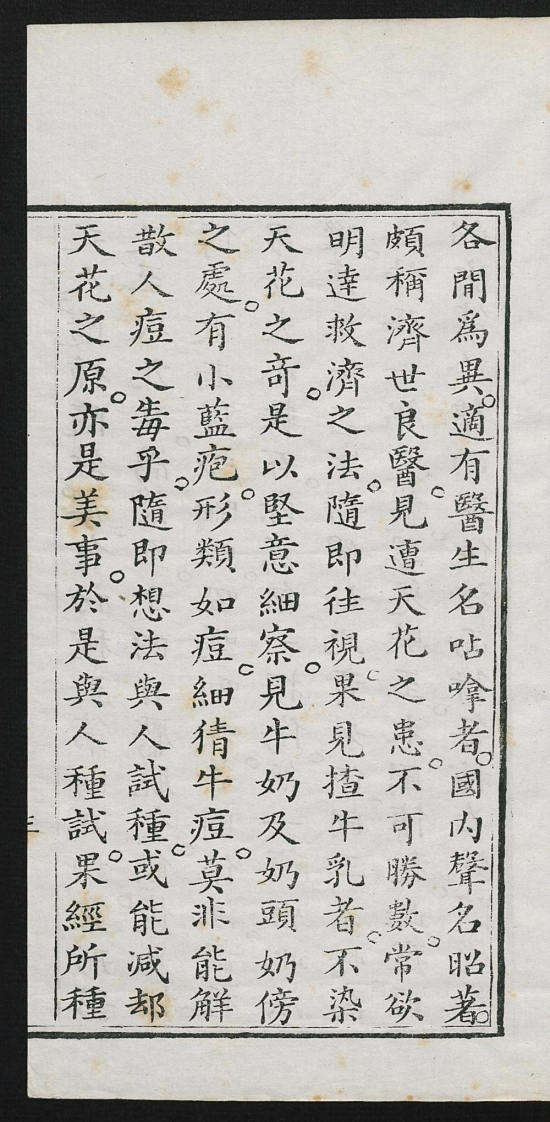 各間爲異。適有醫生名呫嗱者。國內聲名昭著。
頗稱濟世良醫。見遭天花之患。不可勝數。常欲
明達救濟之法。隨即徃視。果見揸牛乳者。不染
天花之竒。是以堅意細察。見牛奶及奶頭奶傍
之處。有小藍疱。形類如痘。細猜牛痘。莫非能解
散人痘之毒乎。隨即想法與人試種。或能減却
天花之原。亦是美事。於是與人種試。果經所種
三